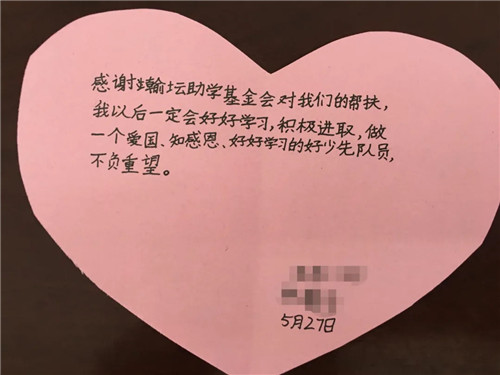 感谢翰坛助学基金会对我们的帮扶,
我以后一定会好好学习,积极进取,做
一个爱国、知感恩、好好学习的好少先队员,
不负重望。
5月27日